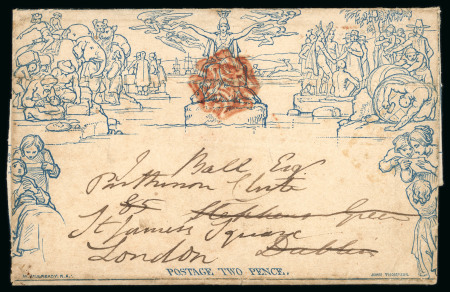 J Ball Esq
Parthenon Club
85 Stephens Green
St James Square
London Dublin
POSTAGE TWO PENCE.
W. MULREADY. R.A.
JOHN THOMPSON